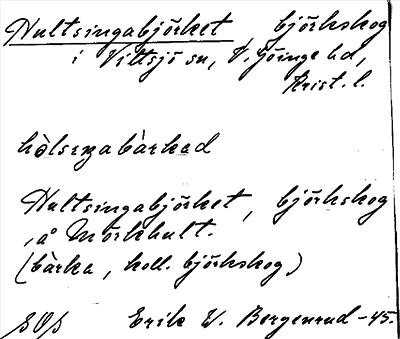 Hultsingabjörket, björkskog
i Vittsjö sn, V. Göinge hd,
Krist. l.
hòlsıŋabàrkəd
Hultsingabjörket, björkskog
å Mörkhult.
(bàrka, koll. björkskog)
SOs Erik W. Bergenrud -45.